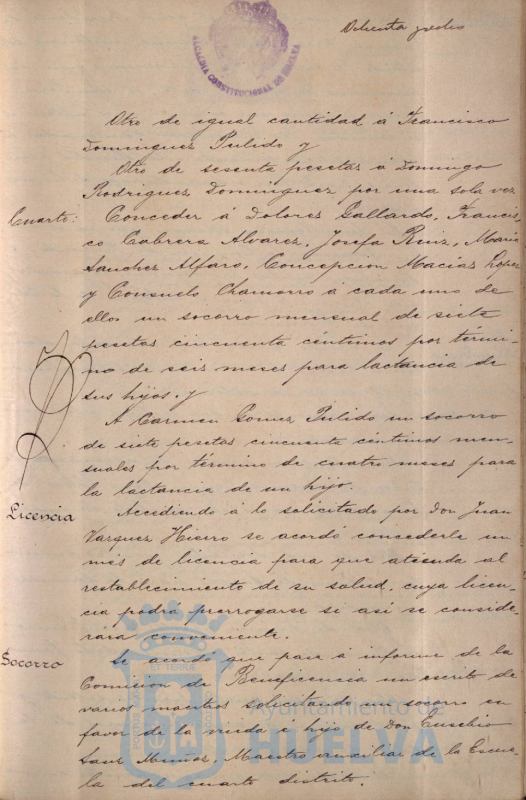 Ochenta y ocho
ALCALDIA CONSTITUCIONAL DE HUELVA
Otro de igual cantidad á Francisco
Dominguez Pulido y
Otro de sesenta pesetas á Domingo
Rodriguez Dominguez por una sola vez
Cuarto: Conceder á Dolores Gallardo, Francis-
co Cabrera Alvarez, Josefa Ruiz, Maria
Sanchez Alfaro, Concepcion Macias Lopez
y Consuelo Chamorro á cada uno de
ellos un socorro mensual de siete
pesetas cincuenta céntimos por térmi-
no de seis meses para lactancia de
sus hijos, y
A Carmen Gomez Pulido un socorro
de siete pesetas cincuenta céntimos men-
suales por término de cuatro meses para
la lactancia de un hijo.
Licencia
Accediendo á lo solicitado por Don Juan
Vazquez Hiero se acordó concederle un
més de licencia para que atienda al
restablecimiento de su salud, cuya licen-
cia podrá prorrogarse si asi se conside-
rára conveniente.
Socorro
Se acordó que pase á informe de la
Comision de Beneficencia un escrito de
varios maestros solicitando un socorro en
favor de la viuda e hijo de Don Eusebio
Sanz Munoz, Maestro auxiliar de la Escue-
la del cuarto distrito.
Ayuntamiento de
HUELVA